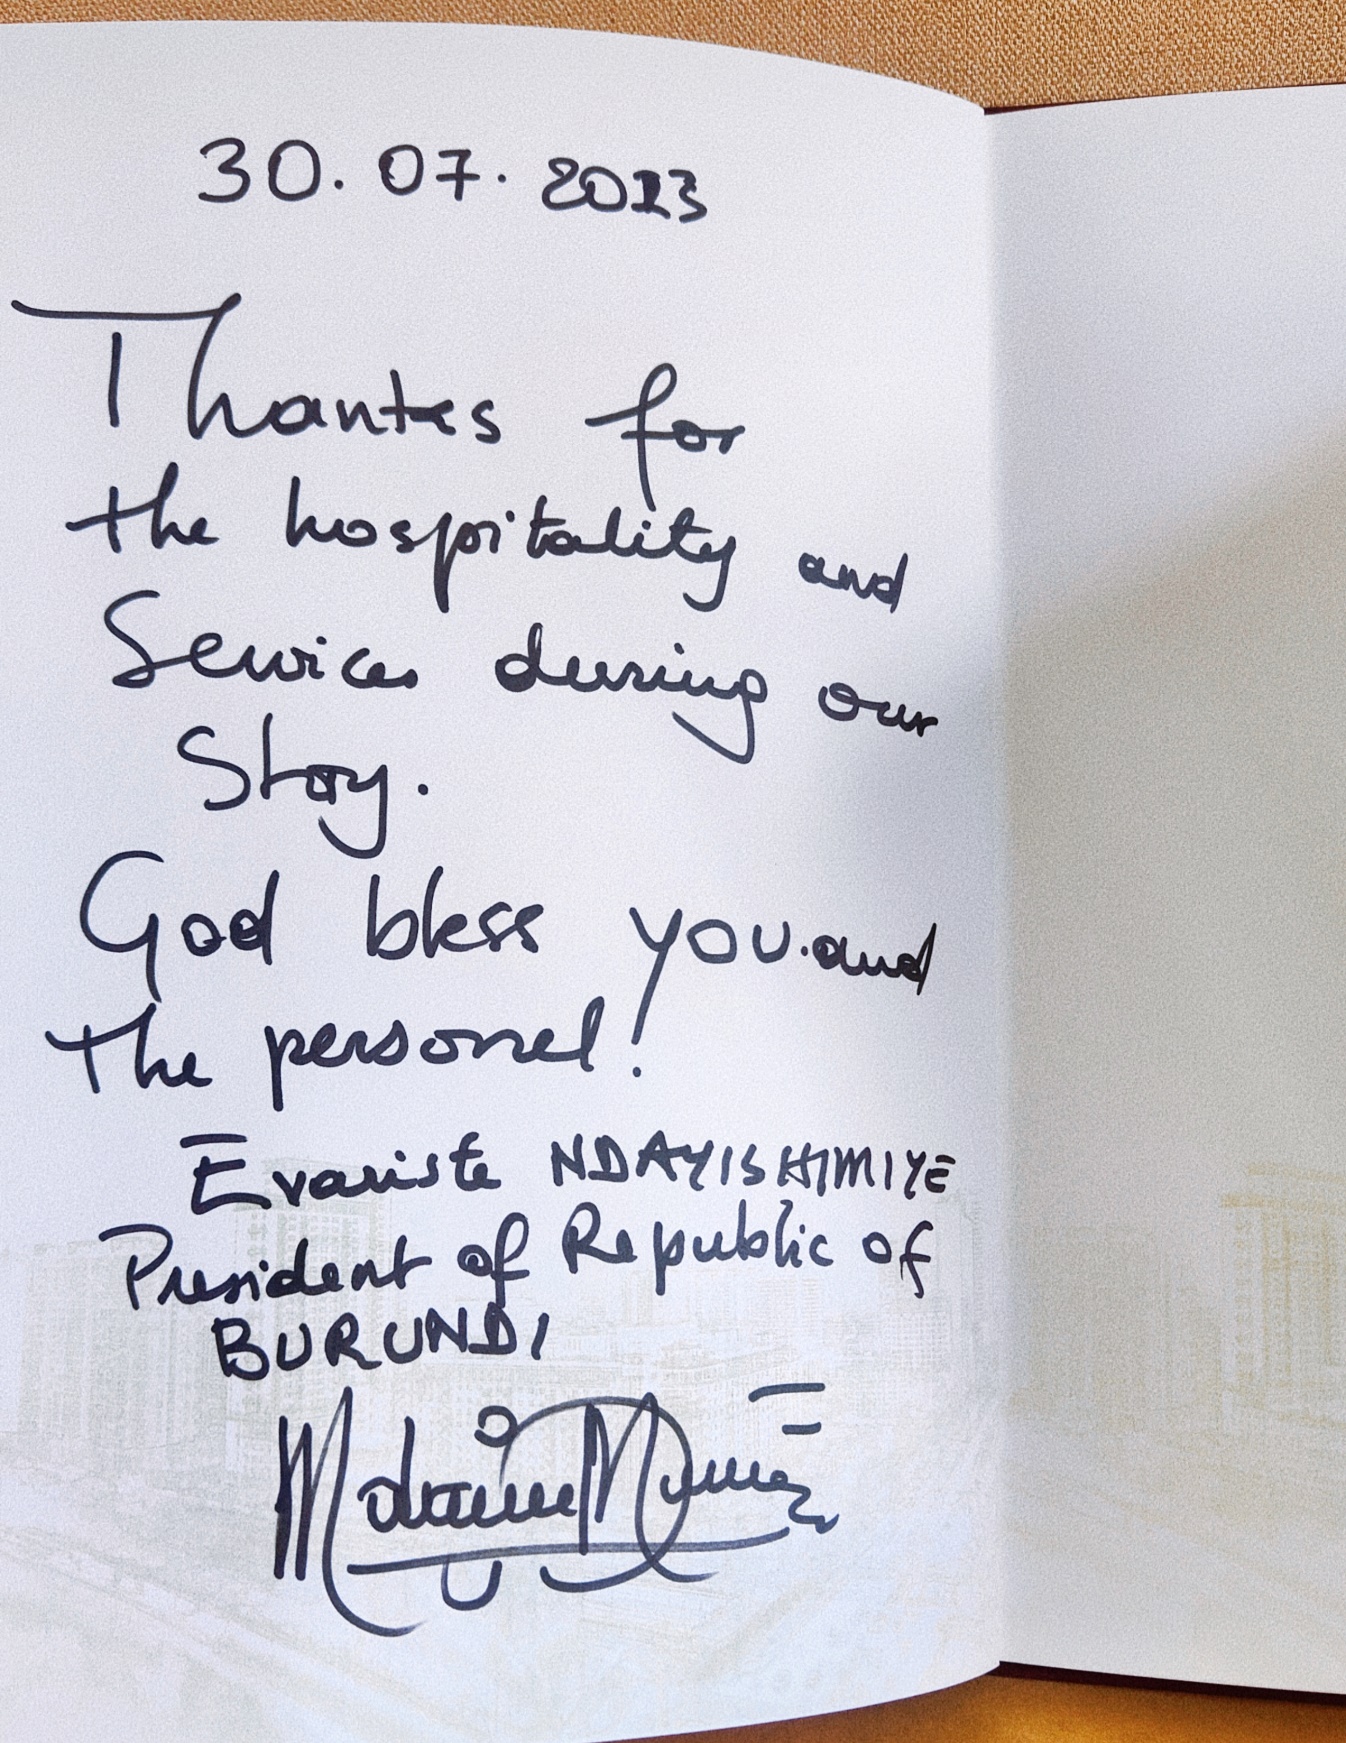 30.07.2023
Thankes for
the hospitality and
Services during our
Stoy.
God bless you and
the personel!
Evariste NDAYISHIMIYE
President of Republic of
BURUNDI